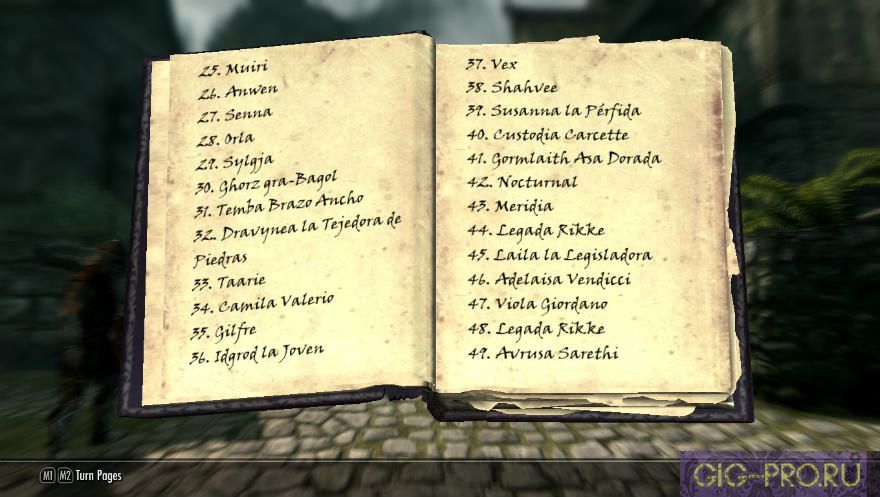 25. Muiri
26. Anwen
27. Senna
28. Orla
29. Sylgja
30. Ghorz gra-Bagol
31. Temba Brazo Ancho
32. Dravynea la Tejedora de
Piedras
33. Taarie
34. Camila Valerio
35. Gilfre
36. Idgrod la Joven
37. Vex
38. Shahvee
39. Susanna la Pérfida
40. Custodia Carcette
41. Gormlaith Asa Dorada
42. Nocturnal
43. Meridia
44. Legada Rikke
45. Laila la Legisladora
46. Adelaisa Vendicci
47. Viola Giordano
48. Legada Rikke
49. Avrusa Sarethi
M1 M2 Turn Pages
GIG-PRO.RU